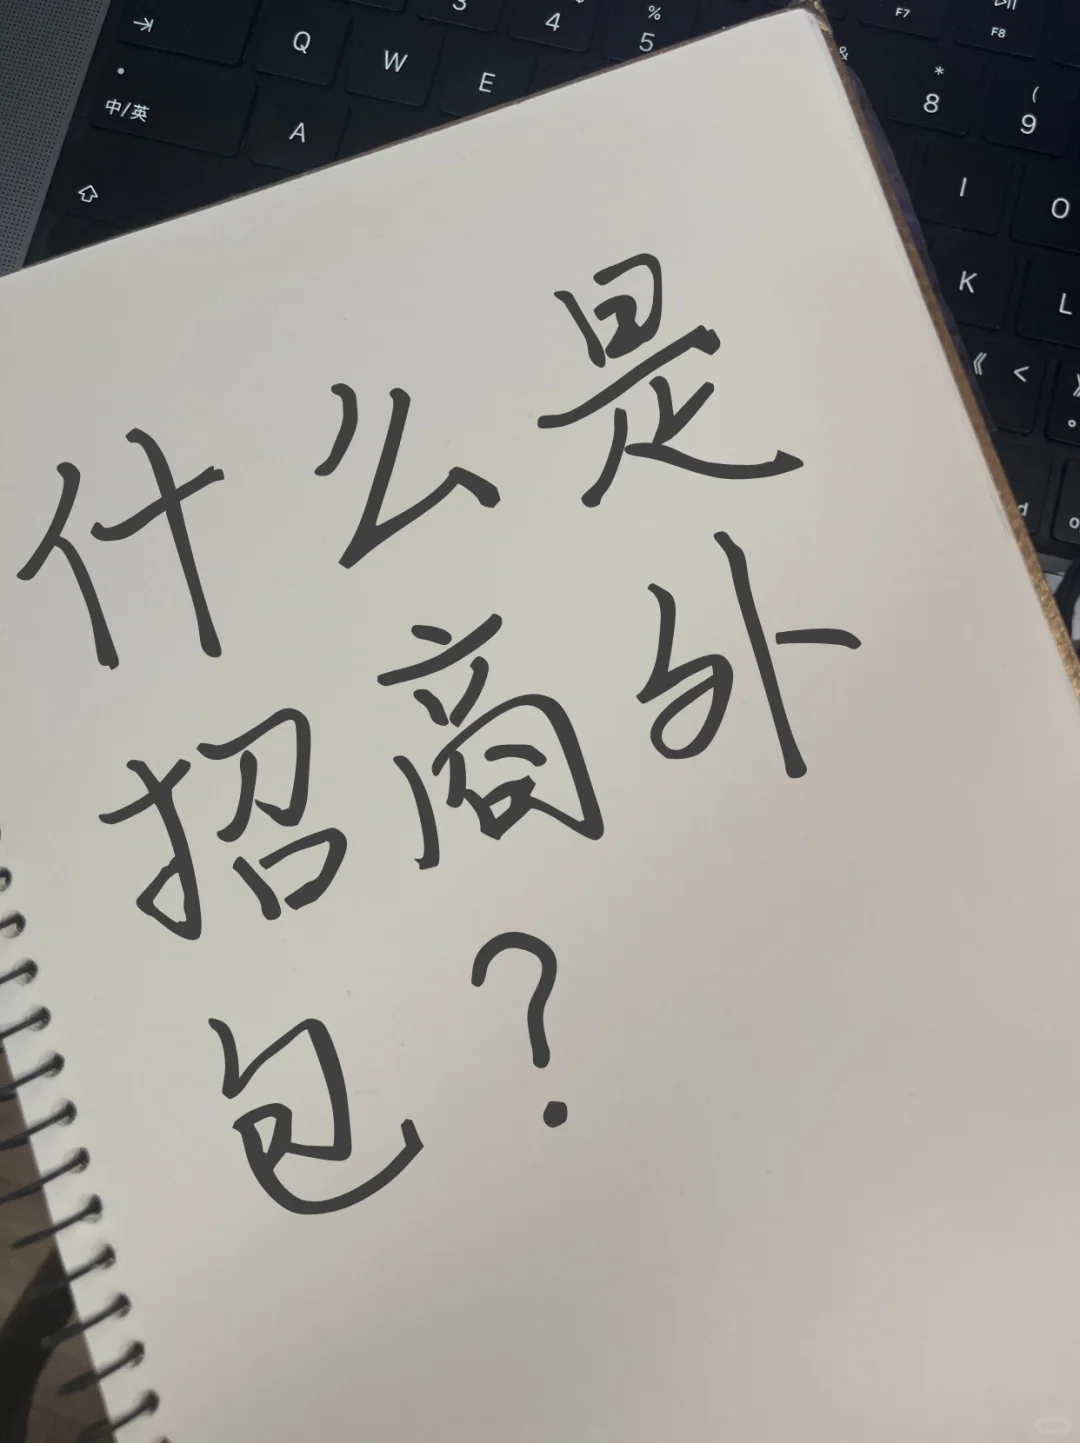 ⇥ Q W E 3 4 % 5 F7 F8
中/英 A & * 8 ( 9
I O
K L
《 <
什么是
招商外
包？